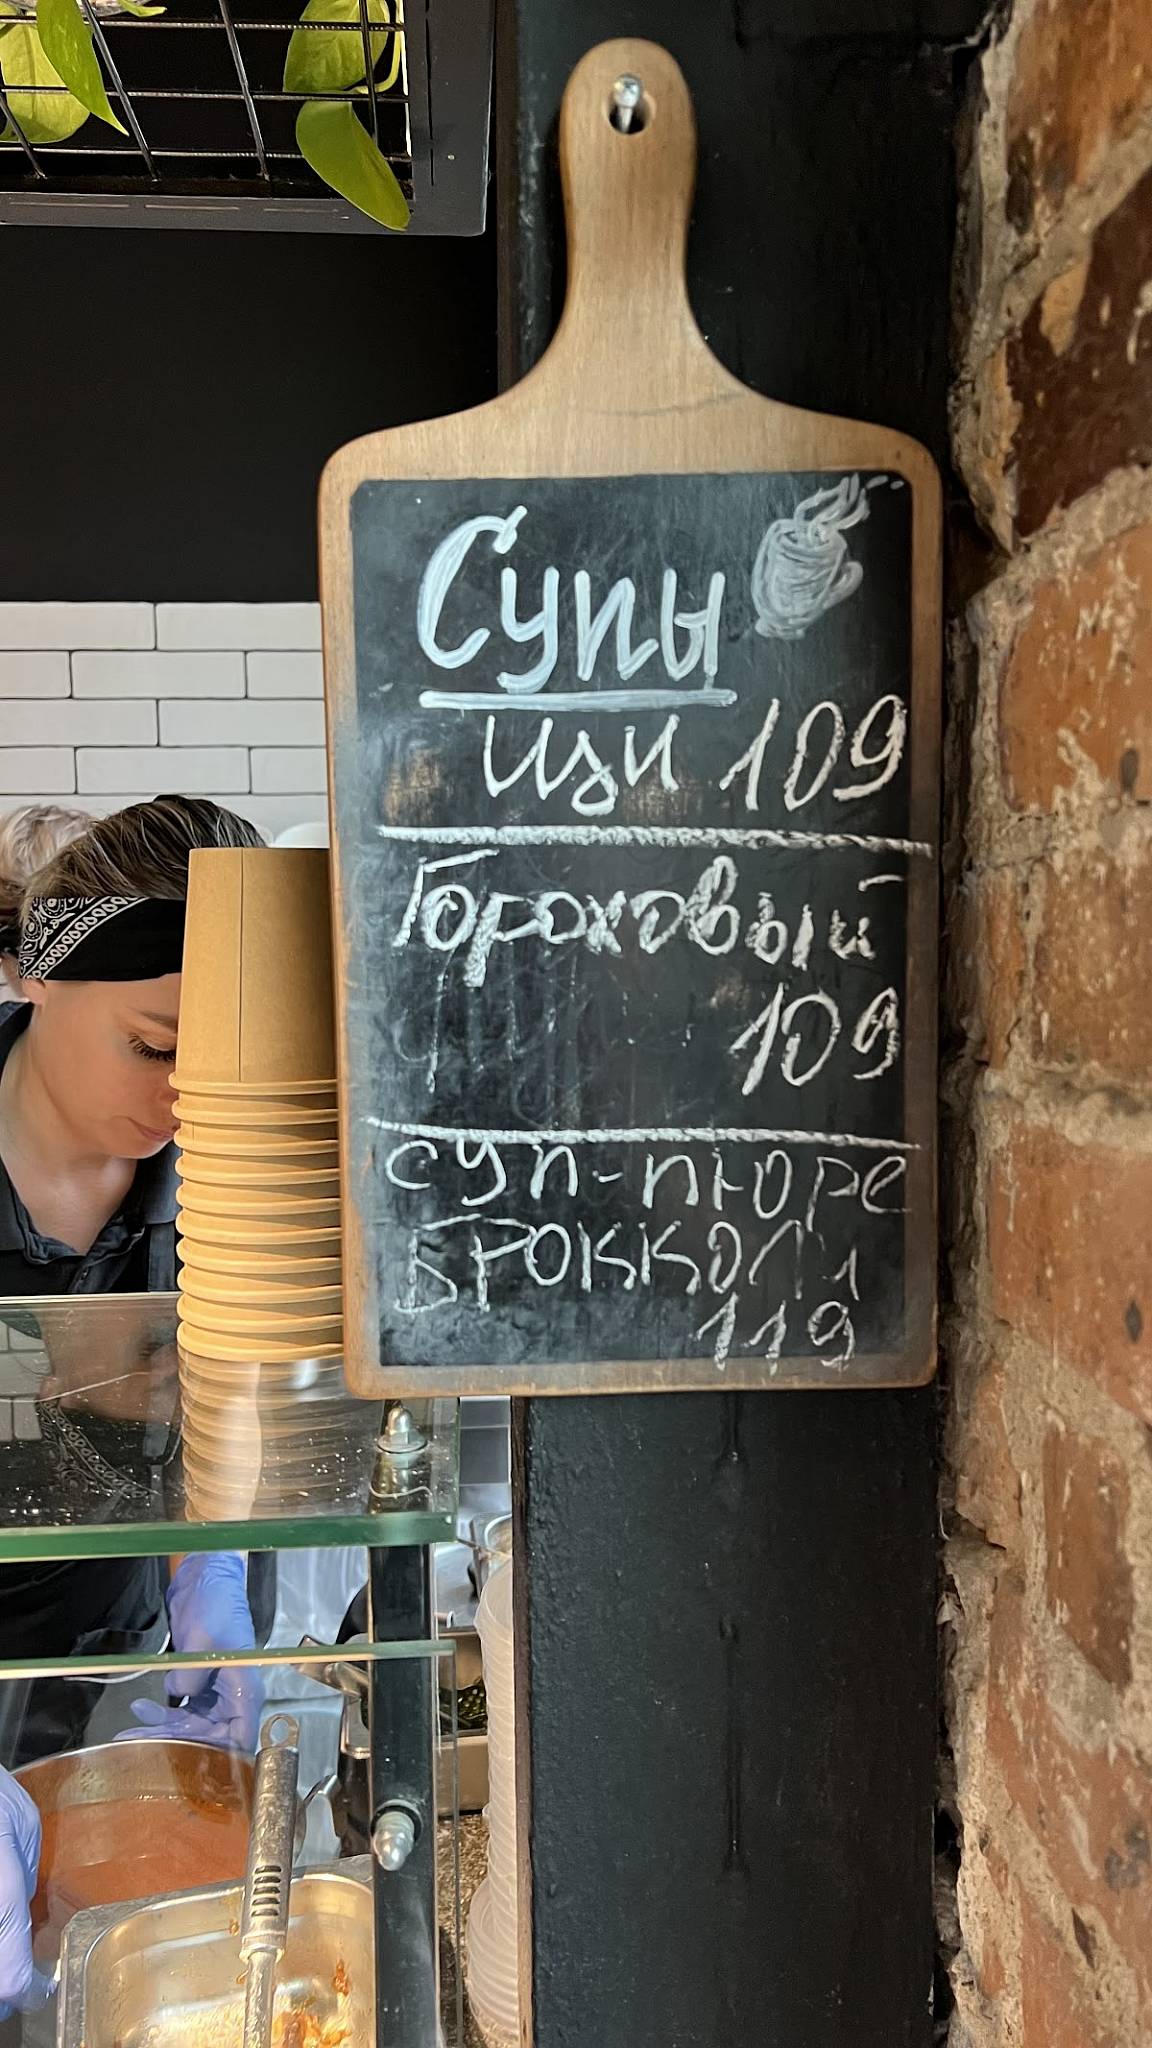 Супы
Щи 109
Гороховый
109
суп-пюре
БРОККОЛИ
119